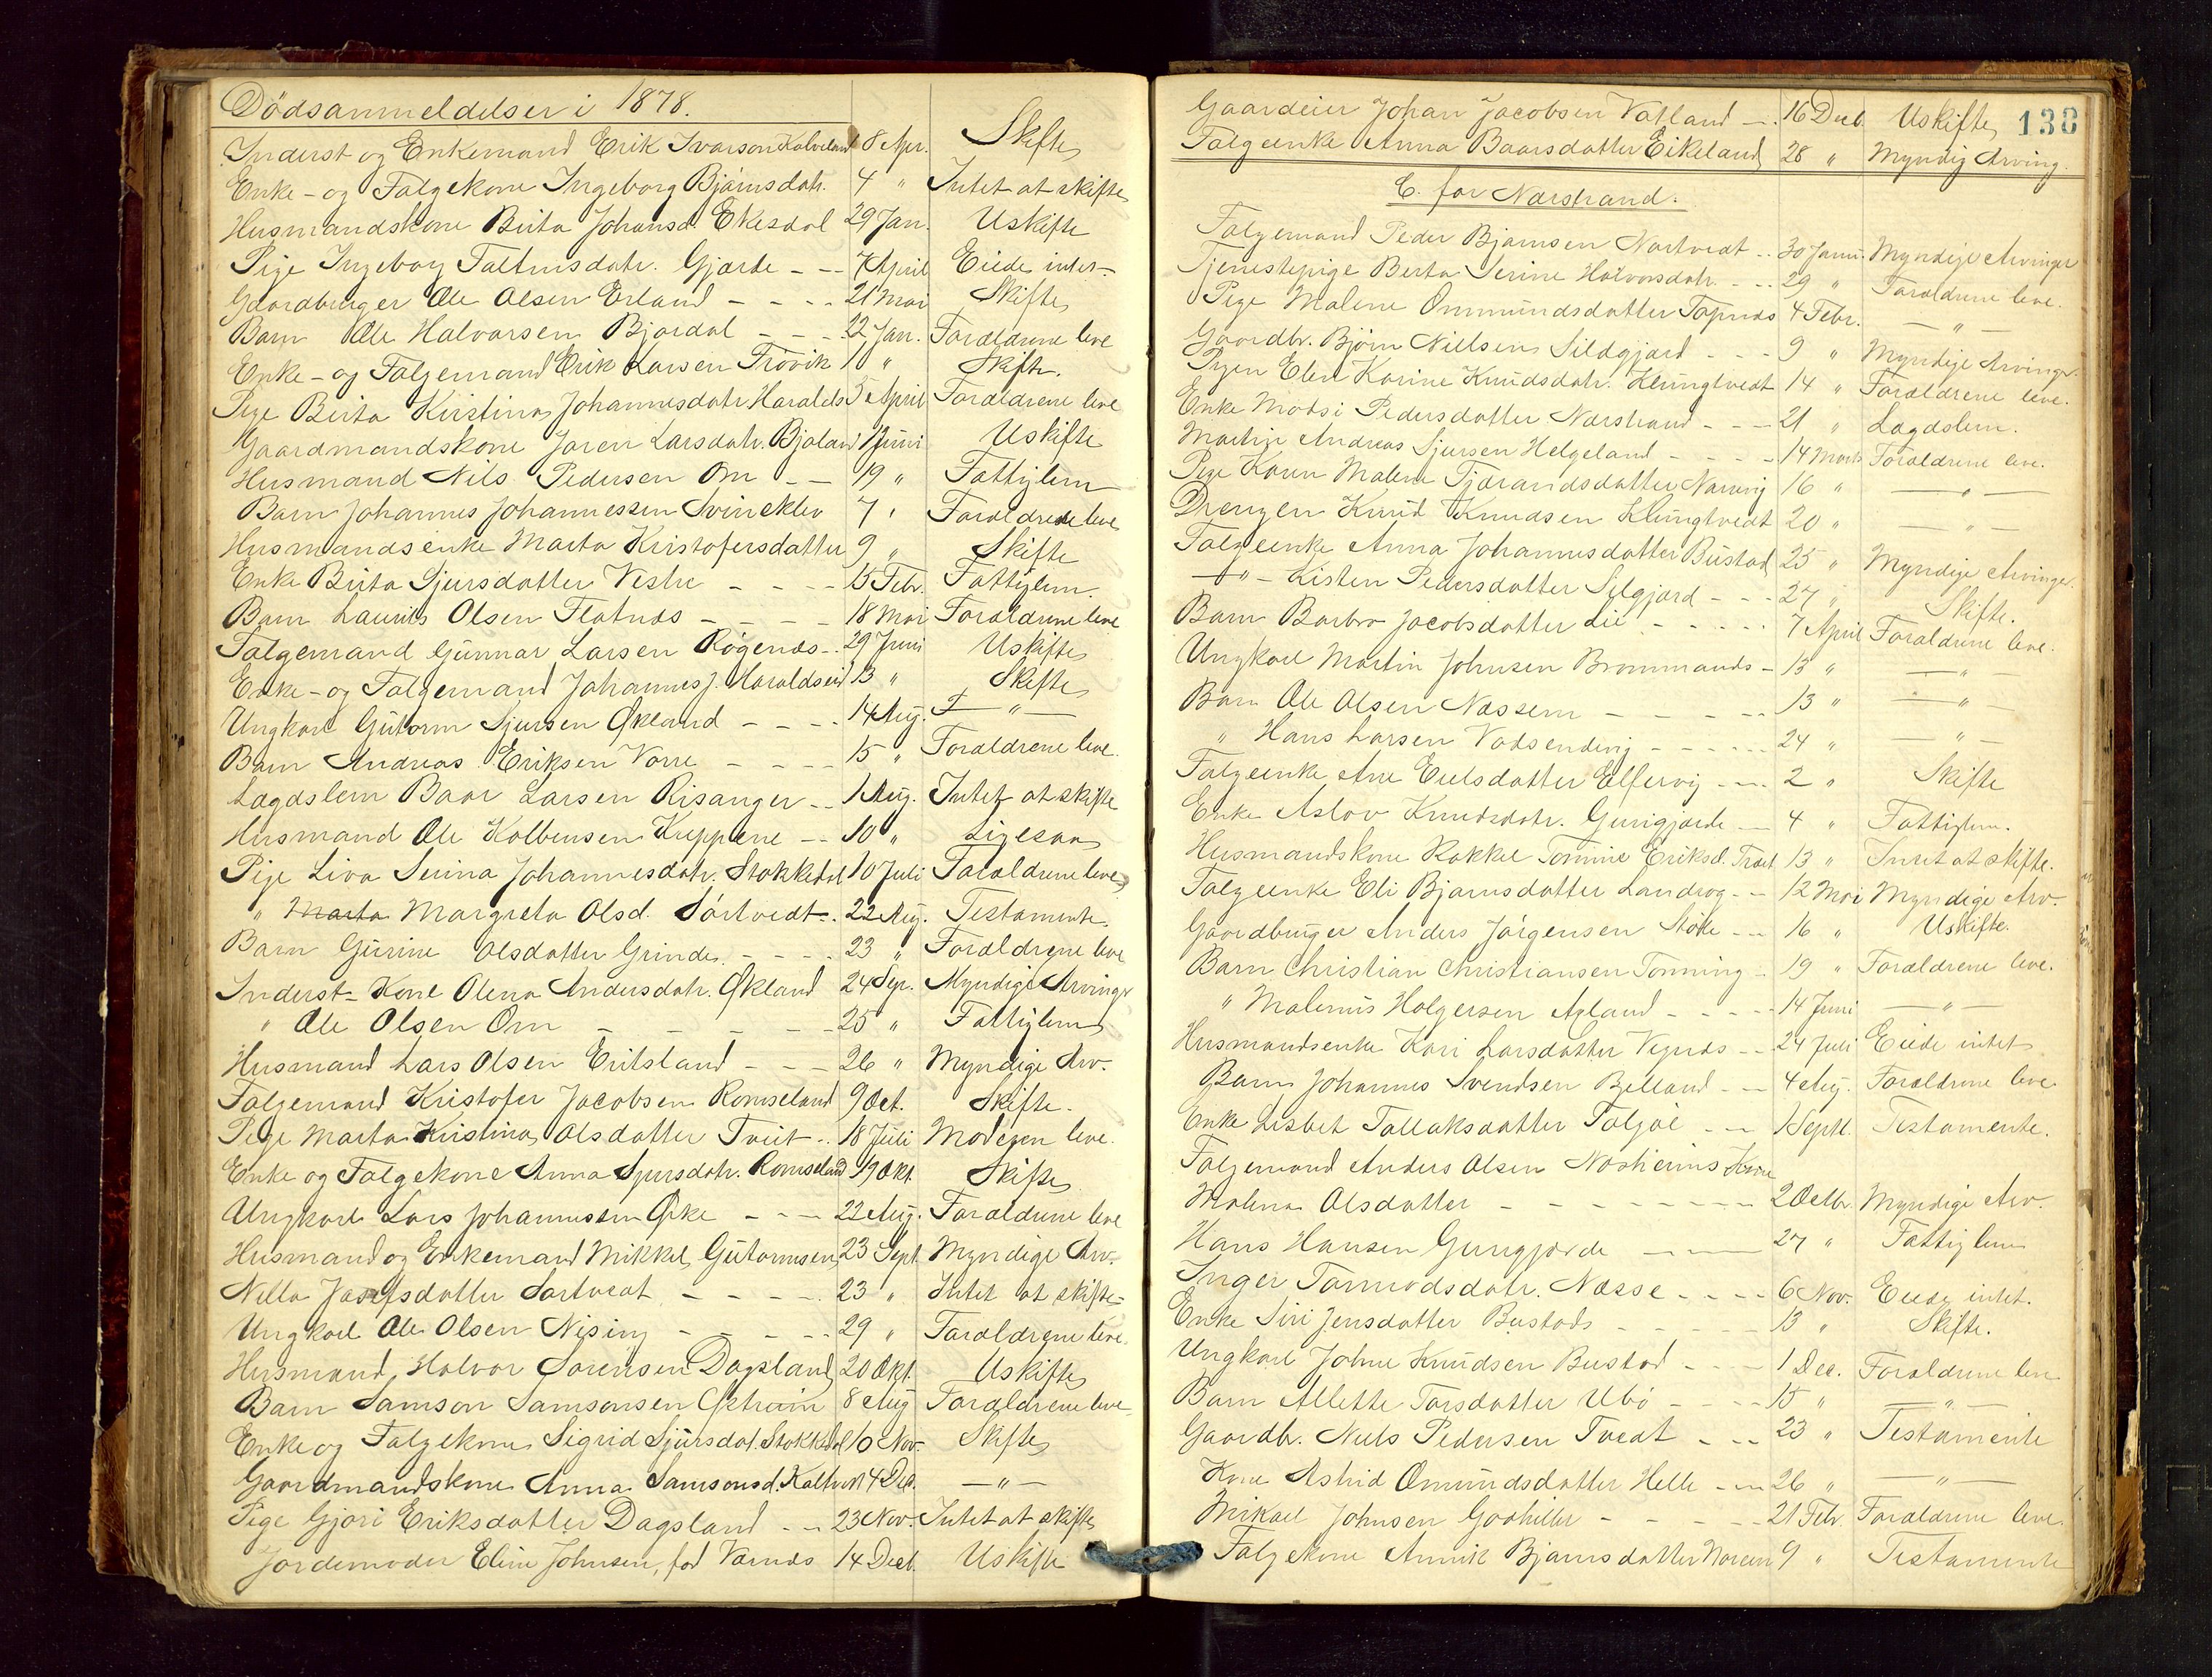 Dödsanmeldelser i 1878.
Inderst og Enkemand Erik Ivarson Kolveland 8 Apr. Skifte
Enke- og Falgekone Ingeborg Bjørnsdatr. 4 " Intet at skifte
Husmandskone Berta Johansd. Ekesdal 29 Jan. Uskifte
Pige Ingeborg Gjærde - - 7 April Eiede intet-
Gaardbruger Ole Olsen Erland - - - - 21 Mai Skifte
Barn Ole Halvorsen Bjordal - - - 22 Jan. Forældrene leve
Enke- og Falgemand Erik Larsen Trövik 10 " Skifte.
Pige Berta Kristina Johannesdatr Haralds 5 April Forældrene leve
Gaardmandskone Joren Larsdatr. Bjoland 1 Juni Uskifte
Husmand Nils Pedersen Om - - 19 " Fattiglem
Barn Johannes Johannessen Svineklev 7 " Forældrene leve
Husmandsenke Marta Kristofersdatter 9 " Skifte
Enke Berta Sjursdatter Vestre - - - 15 Febr. Fattiglem.
Barn Laurits Olsen Flatnæs - - - - 18 Mai Forældrene leve
Falgemand Gunnar Larsen Røgenæs- - 29 Juni Uskifte
Enke- og Falgemand Johannes J. Haraldseid 13 " Skifte
Ungkarl Gutorm Sjursen Økland - - - 14 Aug. — " —
Barn Andreas Eriksen Vorre - - - - 15 " Forældrene leve.
Lægdslem Baar Larsen Risanger - - 1 Aug. Intet at skifte
Husmand Ole Kolbensen Kuppene - - 10 " Ligesaa
Pige Liva Serina Johannesdatr. Stokkedal 10 Juli Forældrene leve
" Marta Margreta Olsd. Sørtvedt- 22 Aug. Testamente
Barn Gurine Olsdatter Grinde - - - - 23 " Forældrene leve
Inderst- Kone Olena Andersdatr. Økland 24 Sep. Myndige Arvinger
" Ole Olsen Om - - - - - 25 " Fattiglem
Husmand Lars Olsen Eritsland - - - 26 " Myndige Arv.
Falgemand Kristofer Jacobsen Romseland 9 Oct. Skifte.
Pige Marta Kristina Olsdatter Tveit - - 18 Juli Moderen leve.
Enke og Falgekone Anna Sjursdatr. Romseland 19 Okt. Skifte
Ungkarl Lars Johannessen Øke - - - 22 Aug. Forældrene leve
Husmand og Enkemand Mikkel Gutormsen 23 Sept. Myndige Arv.
Nella Josefsdatter Sørtvedt - - - - 23 " Intet at skifte-
Ungkarl Ole Olsen Nising - - - - 29 " Forældrene leve.
Husmand Halvor Sørensen Dagsland 20 Okt. Uskifte
Barn Samson Samsonsen 8 Aug Forældrene leve
Enke og Falgekone Sigrid Sjursdat. Stokkedal 10 Nov. Skifte
Gaardmandskone Anna Samsonsd. 4 Dec. — " —
Pige Gjøri Eriksdatter Dagsland - - 23 Nov. Intet at skifte
Jordemoder Eline Johnsen, fød Vornæs 14 Decb. Uskifte
Gaardeier Johan Jacobsen Vatland - - 16 Decb. Uskifte 138
Falgeenke Anna Baarsdatter Eikeland 28 " Myndig Arving.
C. for Nærstrand.
Falgemand Peder Bjørnsen Nortvedt - - 30 Janu. Myndige Arvinger
Tjenestepige Berta Serine Halvorsdatr. - - 29 " Forældrene leve.
Pige Malene Ommundsdatter 4 Febr. — " —
Gaardbr. Bjørn Nielsen Sildgjærd - - - 9 " Myndige Arvinger.
Pigen Elen Karine Knudsdatr. Klungtvedt 14 " Forældrene leve.
Enke Madsi Pedersdatter Nærstrand - - - 21 " Lægdslem.
Martin Andreas Sjursen Helgeland - - - - 14 Marts Forældrene leve.
Pige Karen Malene Tjerandsdatter Narvig 16 " — " —
Drengen Knud Knudsen Klungtvedt 20 " — " —
Falgeenke Anna Johannesdatter Bustad 25 " Myndige Arvinger.
— " — Kisten Pedersdatter Silgjærd - - - 27 " Skifte.
Barn Barbro Jacobsdatter Lie - - - - - 7 April Forældrene leve.
Ungkarl Martin Johnsen Brommands - 13 " — " —
Barn Ole Olsen Næssem - - - - - 13 " — " —
" Hans Larsen Vadsending - - - - - 24 " — " —
Falgeenke Ane Eielsdatter Elfervig - - - 2 " Skifte
Enke Aslov Knudsdatr. Gurigjærde - - 4 " Fattiglem.
Husmandskone Rakkel Tomine Eriksd. Træet 13 " Intet at skifte.
Falgeenke Eli Bjørnsdatter Landrog - - 12 Mai Myndige Arv.
Gaardbruger Anders Jørgensen Støle - - 16 " Uskifte.
Barn Christian Christiansen Tonning - 19 " Forældrene leve.
" Malenius Holgersen Apland - - - - 14 Juni — " —
Husmandsenke Kari Larsdatter Vignæs - - 24 Juli Eiede intet
Barn Johannes Svendsen Belland - - 4 Aug. Forældrene leve
Enke Lisbet Tollaksdatter - - 1 Septl. Testamente.
Falgemand Anders Olsen Kone
Malena Olsdatter - - - - - - - 2 Octbr. Myndige Arv.
Hans Hansen Gurigjærde - - - 27 " Fattiglem
Inger Tormodsdatr. Næsse - - - - 6 Nov. Eiede intet.
Enke Siri Jensdatter Bustads - - - - 13 " Skifte.
Ungkarl Johne Knudsen Bustad - - - - 1 Dec. Forældrene leve
Barn Allette Torsdatter Ubø - - - - 15 " — " —
Gaardbr. Niels Pedersen Tvedt - - - 23 " Testamente
Kone Astrid Omundsdatter Helle - - - 26 " — " —
Mikael Johnsen Godhiller - - - - - 21 Febr. Forældrene leve.
Falgekone Annik Bjørnsdatter 9 " Testamente